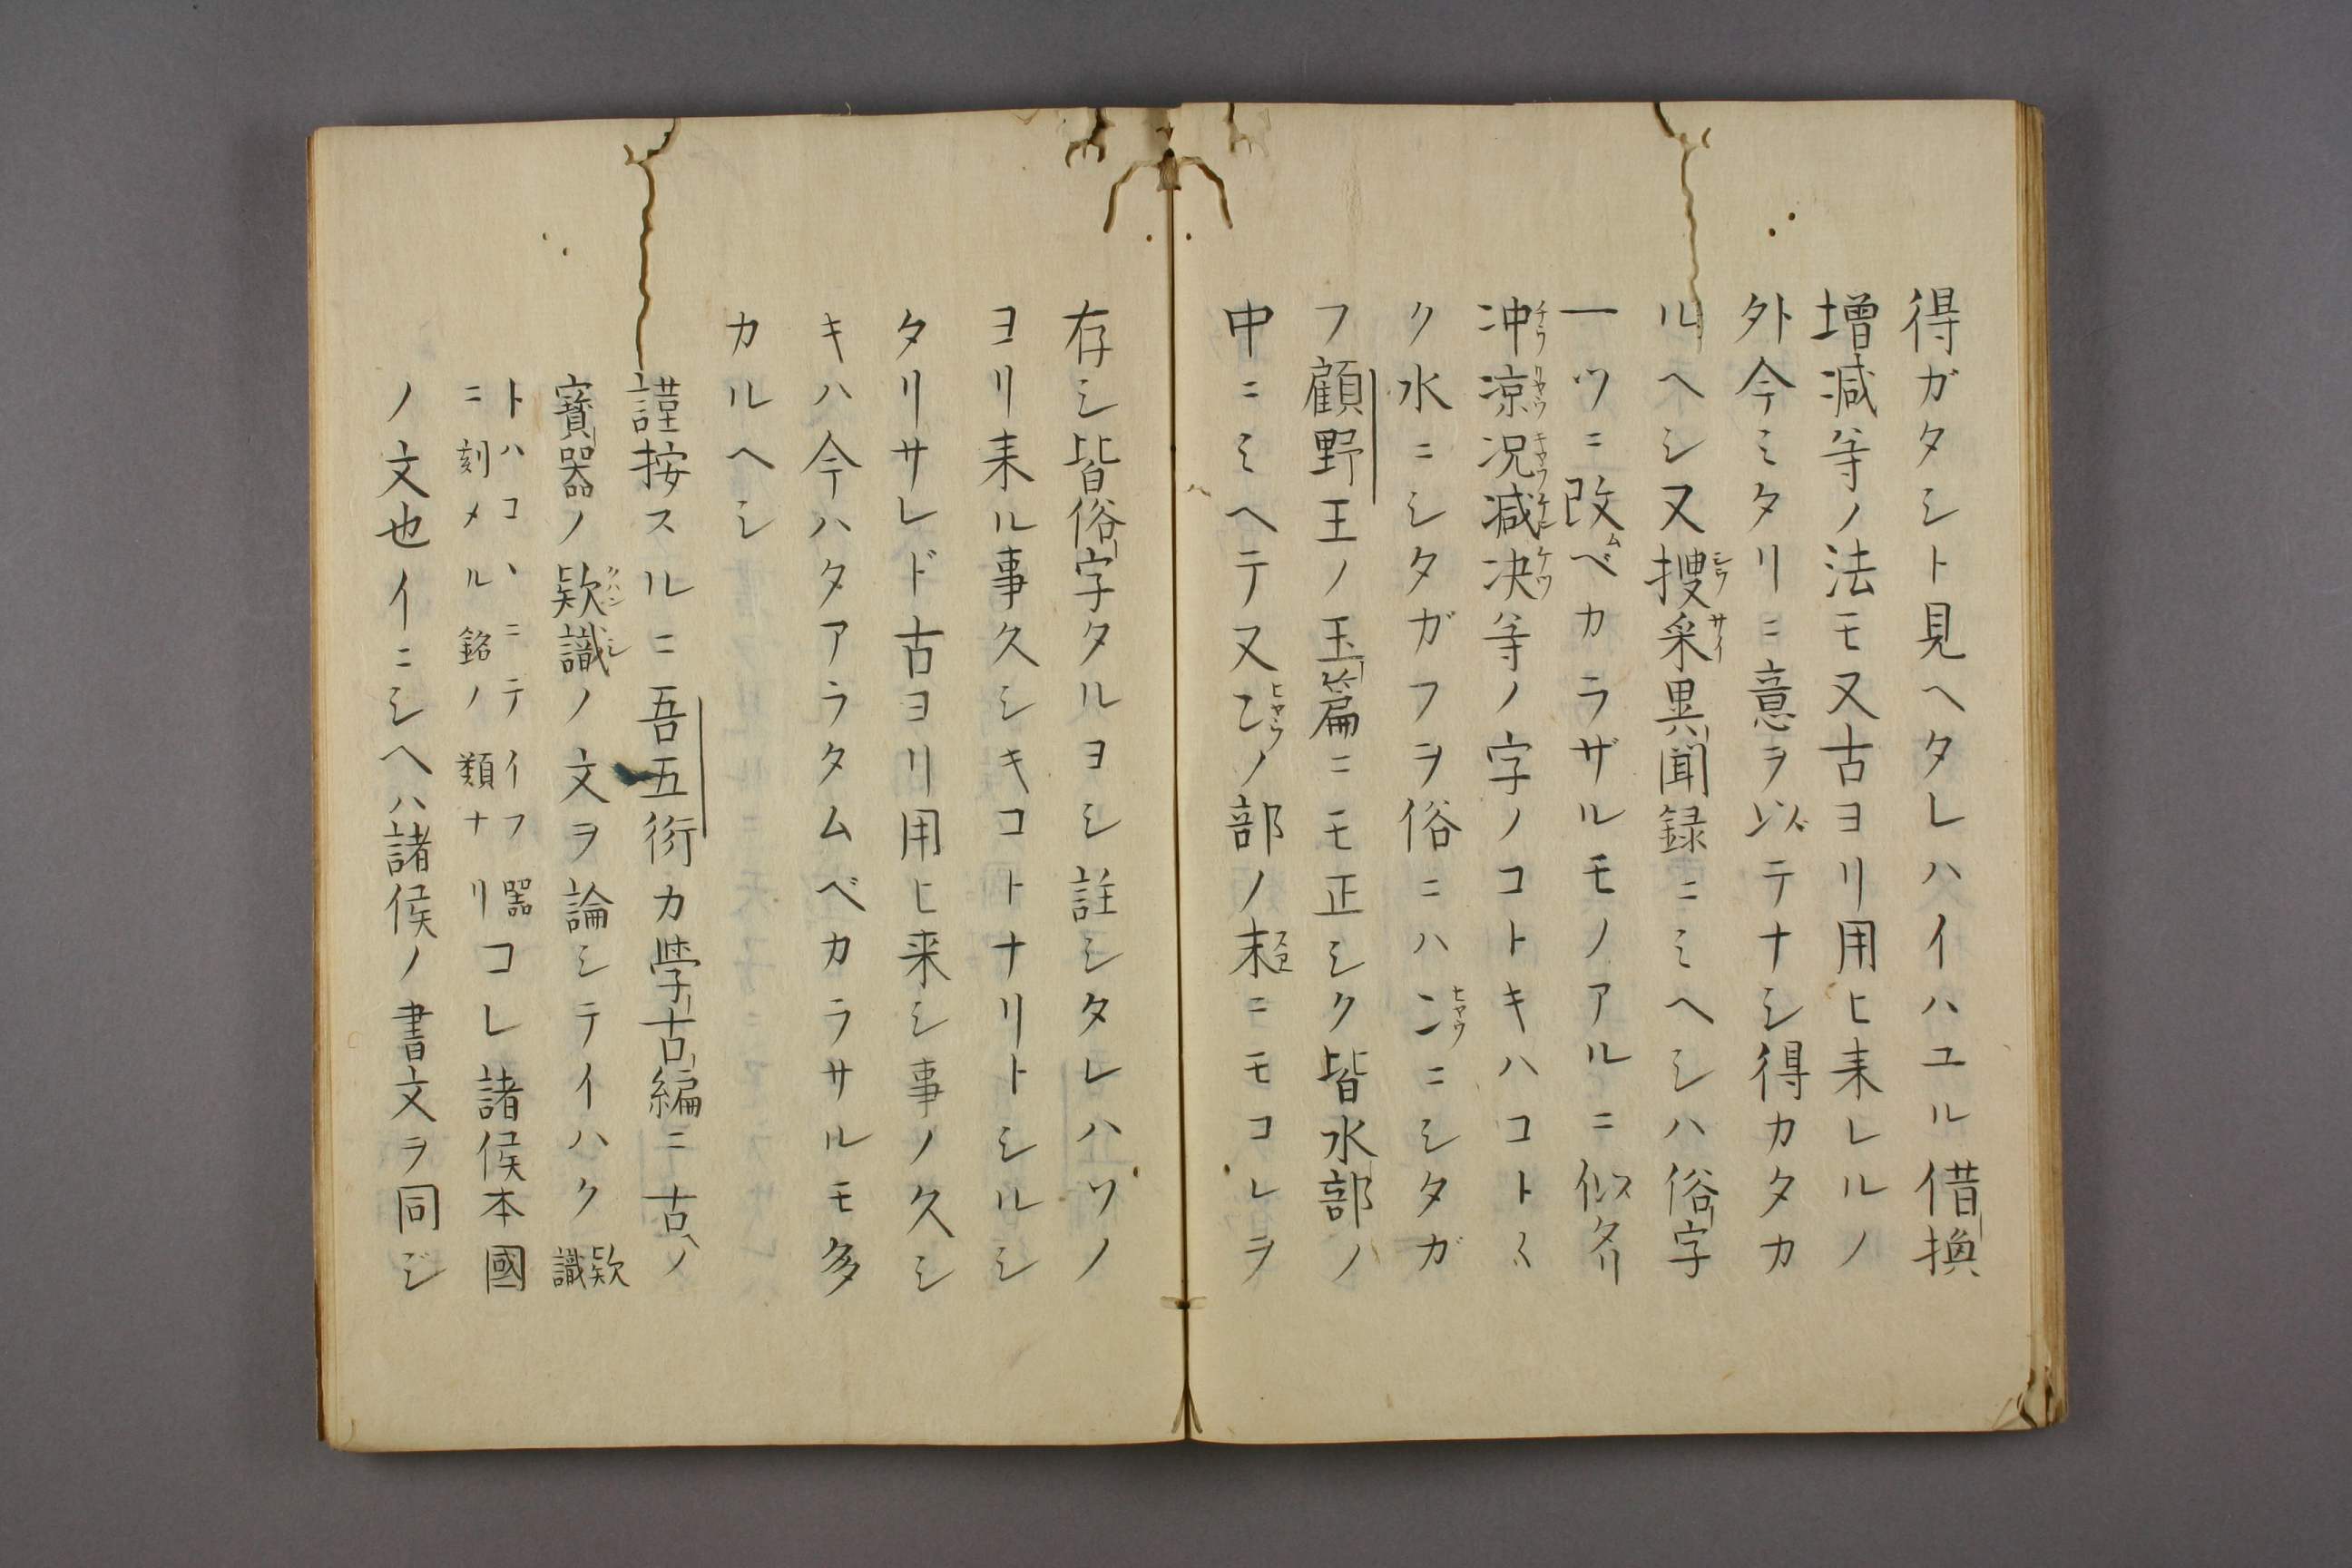 得ガタシト見ヘタレハイハユル借換
増減等ノ法モ又古ヨリ用ヒ耒レルノ
外今ミタリニ意ヲ以テナシ得カタカ
ルヘシ又捜采異聞録ニミヘシハ俗字
一ツニ改ムベカラザルモノアルニ似タリ
冲凉况减决等ノ字ノコトキハコト〱
ク水ニシタガフヲ俗ニハ冫ニシタガ
フ顧野王ノ玉篇ニモ正シク皆水部ノ
中ニミヘテ又冫ノ部ノ末ニモコレヲ
存シ皆俗字タルヨシ註シタレハソノ
ヨリ耒ル事久シキコトナリトシルシ
タリサレド古ヨリ用ヒ来シ事ノ久シ
キハ今ハタアラタムベカラサルモ多
カルヘシ
謹按スルニ吾五衍カ学古編ニ古ヘノ
寳器ノ欵識ノ文ヲ論シテイハク欵識
トハコヽニテイフ器
ニ刻メル銘ノ類ナリ
コレ諸侯本國
ノ文也イニシヘハ諸侯ノ書文ヲ同ジ